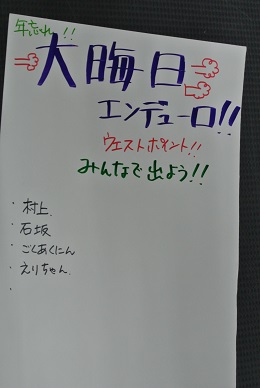 年忘れ!!
大晦日
エンデューロ!!
ウエストポイント!!
みんなで出よう!!
・村上
・石坂
・ごくあくにん
・えりちゃん
・